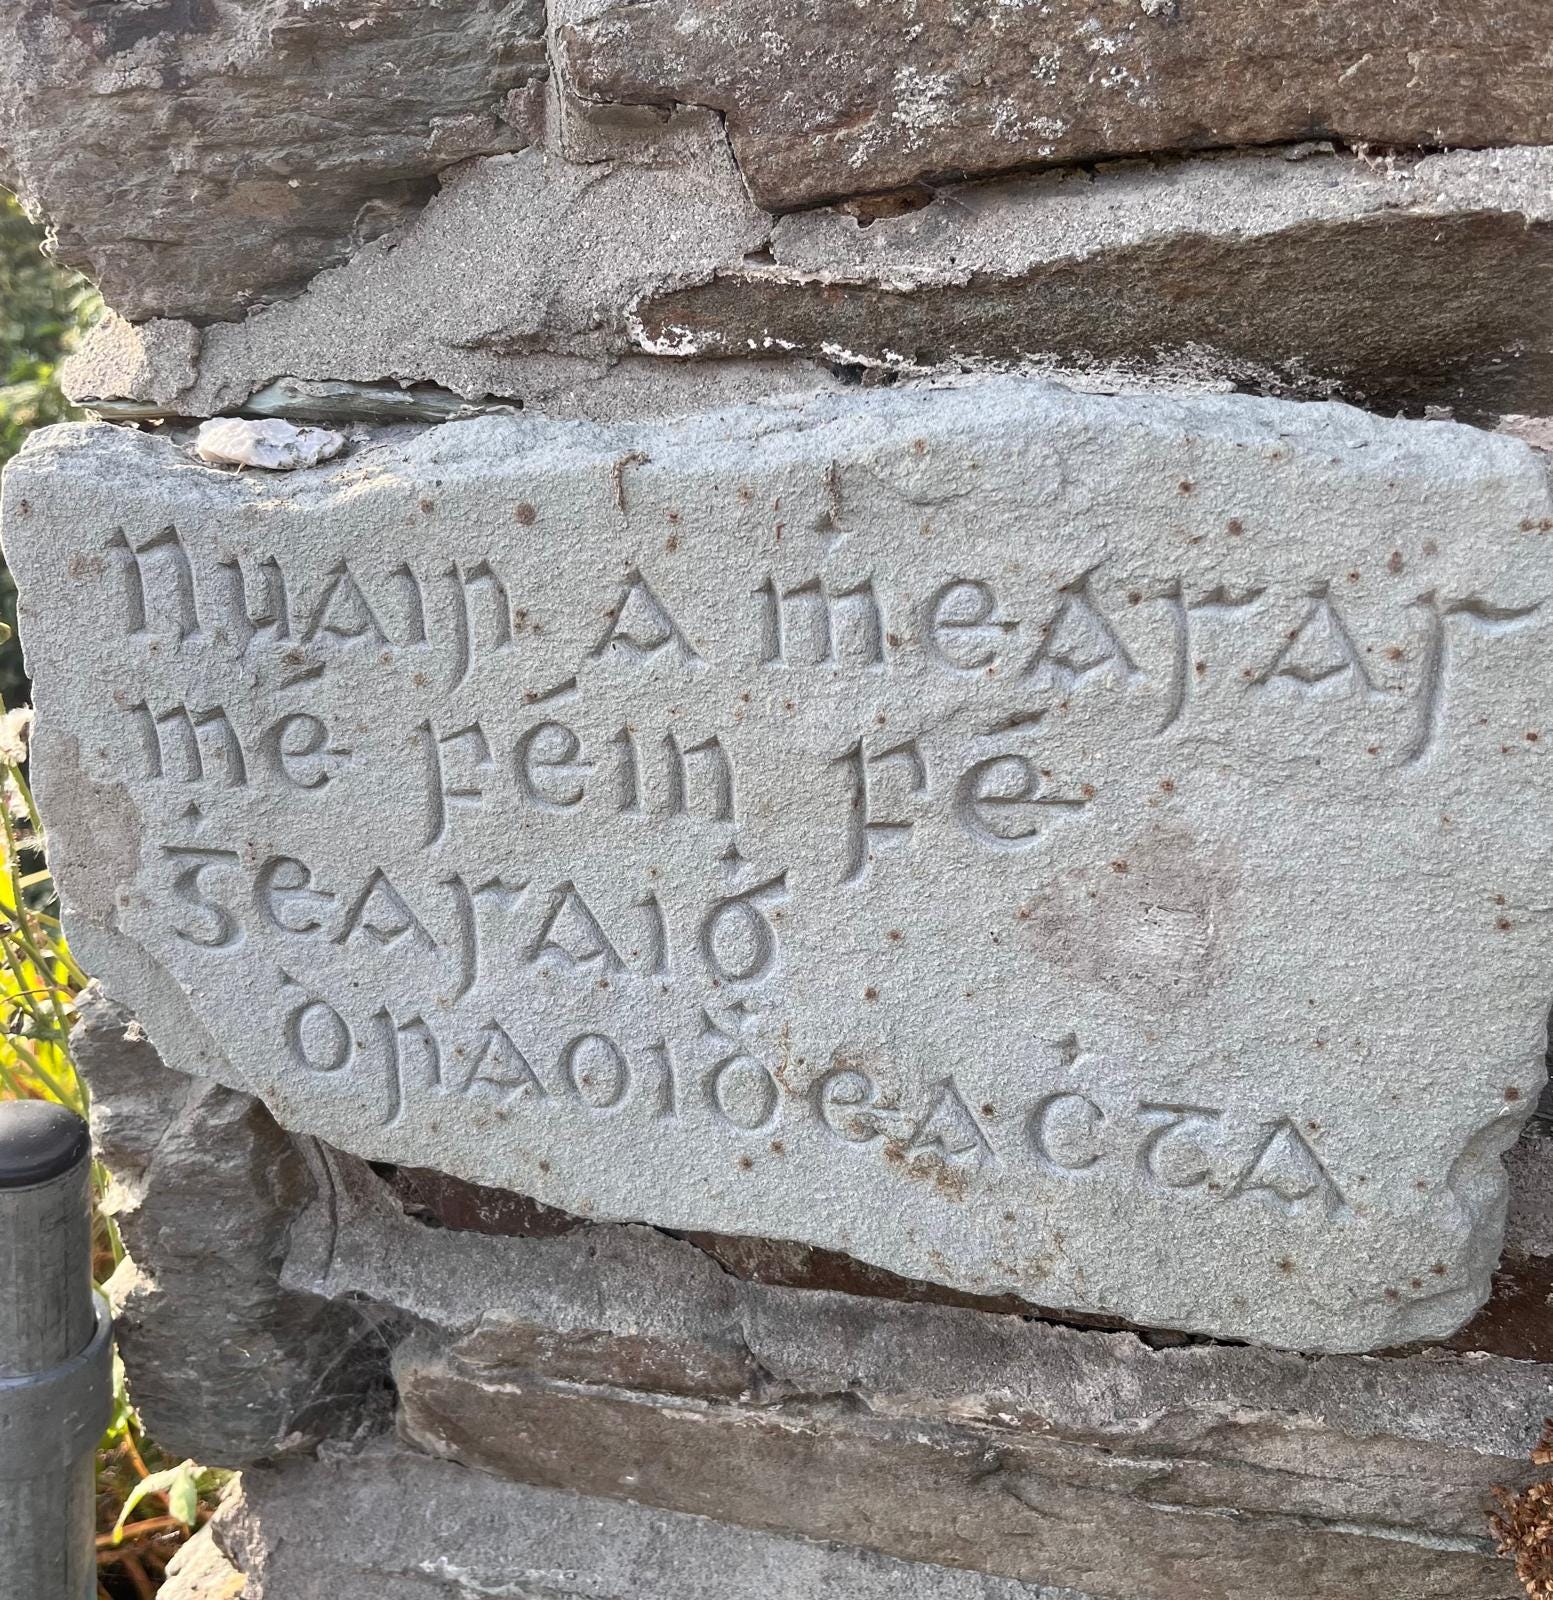 Nuair a ṁeasas
mé féin fé
ġeasaiḃ
draoiḋeaċta